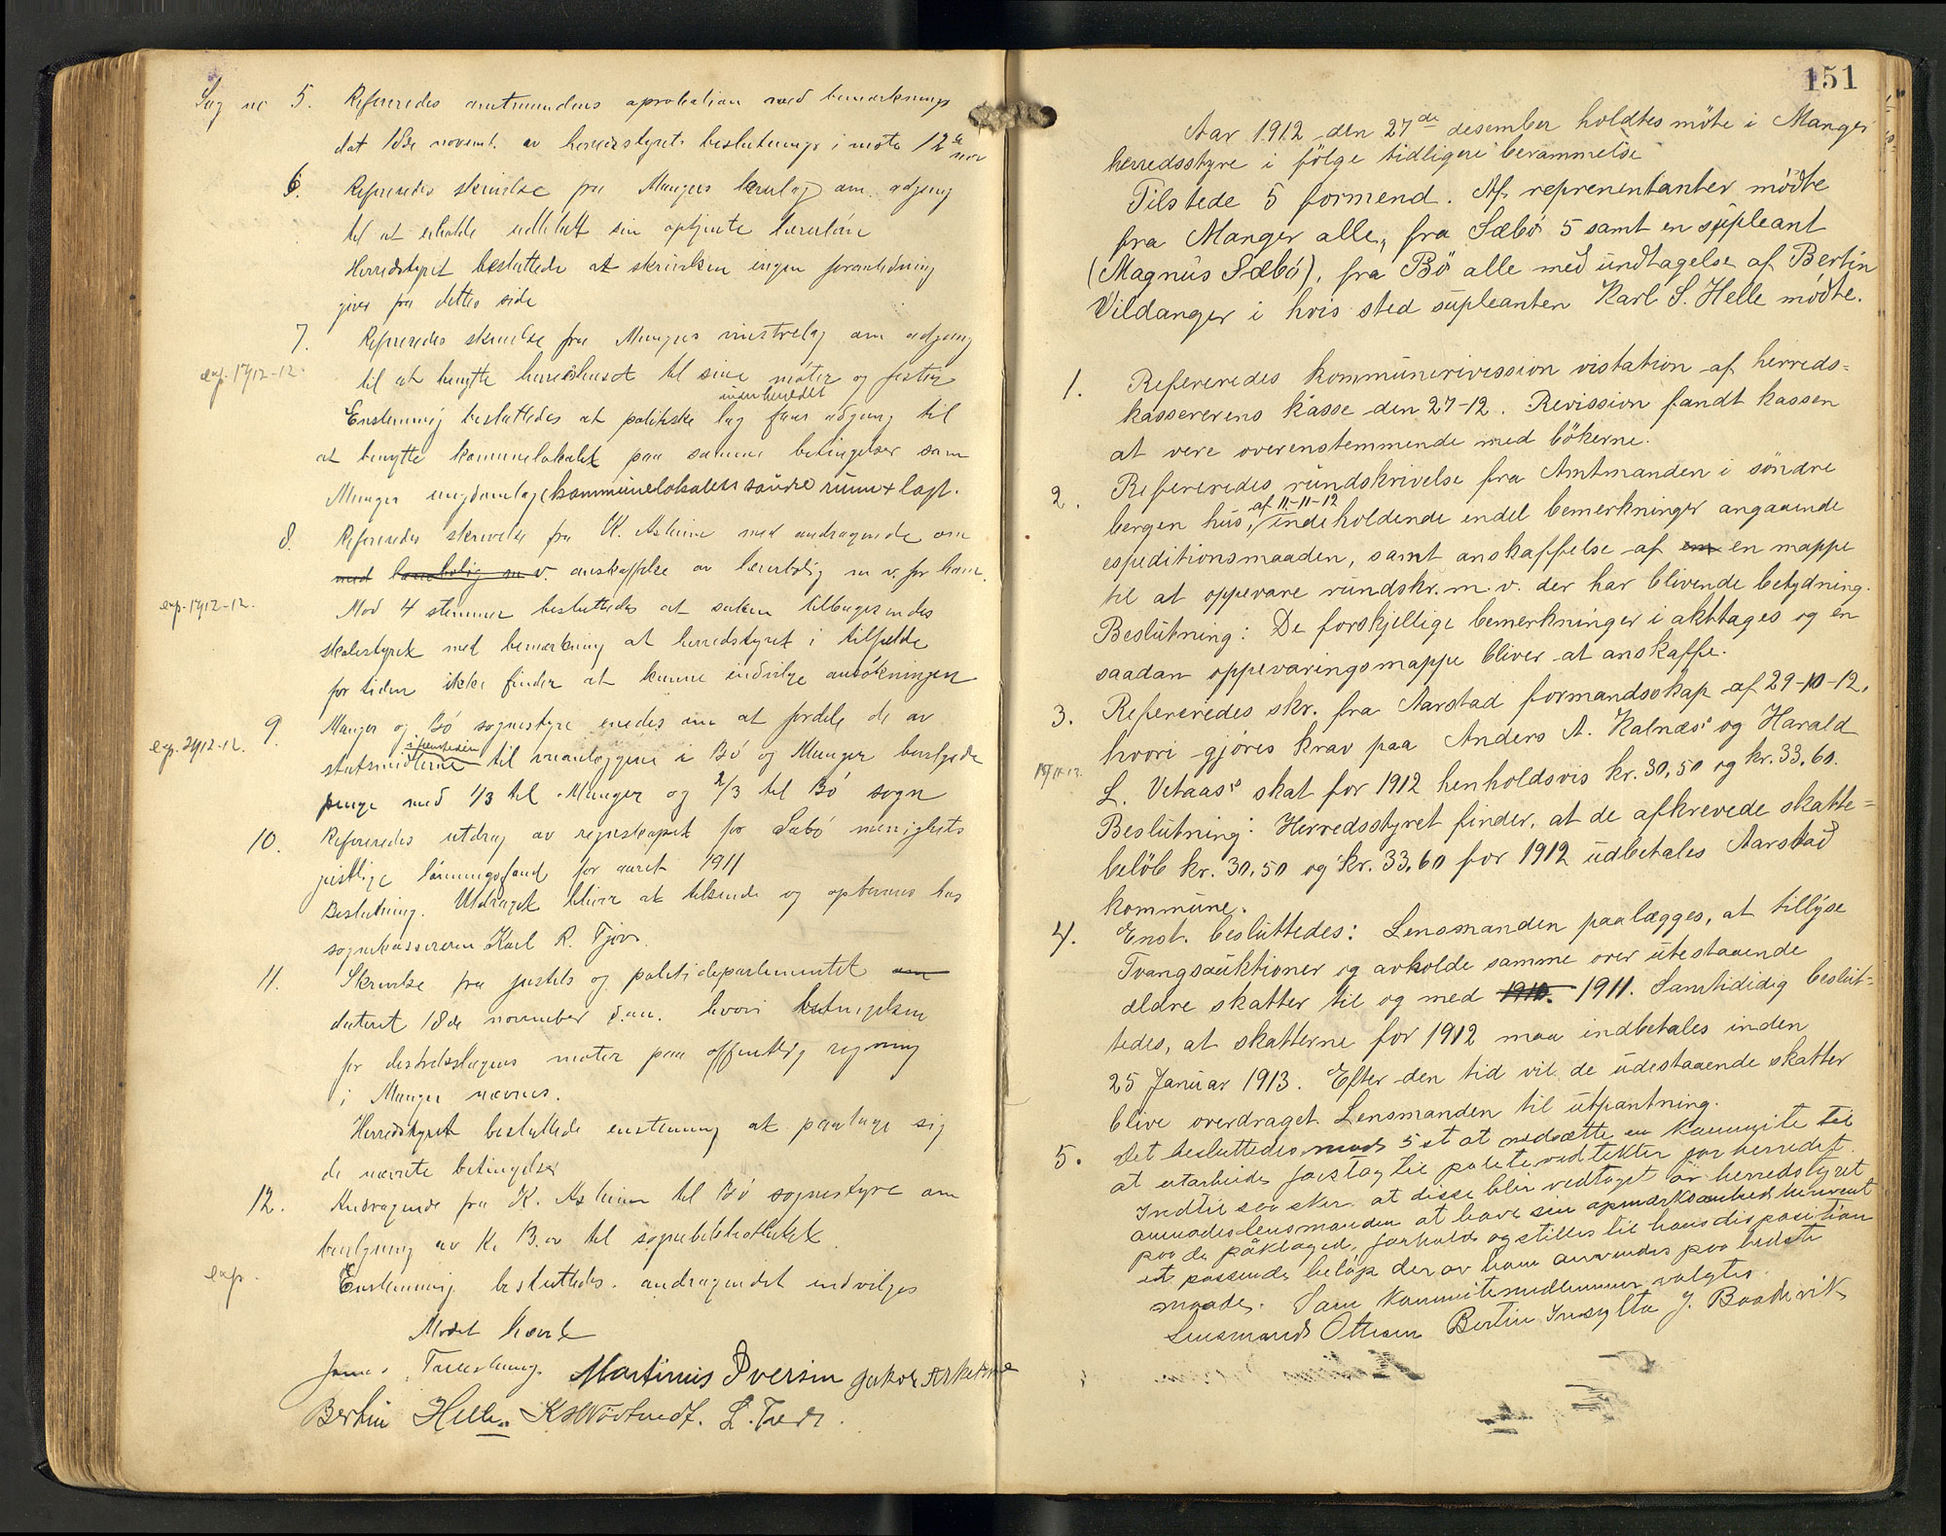 Sag no 5. Refereredes amtmandens aprobation med bemerkninger
dat 18de novemb. av herredstyrets beslutninger i møte 12te nov
6. Refereredes skrivelse fra Mangers lærerlag om adgang
til at erholde udbetalt sin optjente lærerløn
Herredstyret besluttede at skrivelsen ingen foranledning
giver fra dettes side
7. Refereredes skrivelse fra Mangers venstrelag om adgang
exp. 17/12-12. til at benytte herredshuset til sine møter og fester
Enstemmig besluttedes at politiske lag inen herredet faar adgang til
at benytte kommunelokalet paa samme betingelser som
Manger ungdomslag (kommunelokalets søndre rum + lagt.
8. Refereredes skrivelse fra K. Askeim med andragende om
med lærerbolig m v. anskaffelse av lærerbolig m v. for ham.
exp. 17/12-12. Mod 4 stemmer besluttedes at saken tilbagesendes
skolestyret med bemerkning at herredstyret i tilfælde
for tiden ikke finder at kunne indvilge ansökningen
9. Manger og Bö sognestyre enedes om at fordele de av
exp. 24/12-12. statsmidlerne til veianlæggene i Bö og Manger bevilgede
penge med 1/3 til Manger og 2/3 til Bö sogn
10. Refereredes utdrag av regnskapet for Sæbö menigheds
gistlige lönningsfond for aaret 1911
Beslutning. Utdraget bliver at tilsende og opbevares hos
sognekassereren Karl R. Tjore.
11. Skrivelse fra justits og politidepartementet om
dateret 18de november d.aa. hvori betingelsene
for distriktslægens møter paa offentlig regning
i Manger nævnes.
Herredstyret besluttede enstemmig at paatage sig
de nævnte betingelser
12. Andragende fra K. Askeim til Bö sognestyre om
bevilgning av Kr B. ov til sognebiblioteket.
exp. Enstemmig besluttedes. andragendet indvilges
Mødet hævet
Martinus Iversen Jakob Askeland
Bertin Helle. L.
151
Aar 1912 den 27de desember holdtes möte i Manger
herredsstyre i fölge tidligere berammelse
Tilstede 5 formend. Af reprenentanter mödte
fra Manger alle, fra Sæbö 5 samt en supleant
(Magnus Sæbö), fra Bö alle med undtagelse af Bertin
Vildanger i hvis sted supleanten Karl S. Helle mödte.
1. Refereredes kommunerivission vistation af herreds=
kassererens kasse den 27-12. Revission fandt kassen
at vere overenstemmende med bökerne.
2. Refereredes rundskrivelse fra Amtmanden i söndre
bergen hus, af 11-11-12 indeholdende endel bemerkninger angaaende
espeditionsmaaden, samt anskaffelse af em en mappe
til at oppevare rundskr. m. v. der har blivende betydning.
Beslutning: De forskjellige bemerkninger i akttages og en
saadan oppevaringsmappe bliver at anskaffe.
3. Refereredes skr. fra Aarstad formandsskap af 29-10-12,
hvori gjöres krav paa Anders A. Kalnæs' og Harald
L. Vetaas' skat for 1912 henholdsvis kr. 30,50 og kr. 33,60.
Beslutning: Herredsstyret finder, at de afkrevede skatte=
belöb kr. 30,50 og kr. 33,60 for 1912 udbetales Aarstad
kommune.
4. Enst. besluttedes: Lensmanden paalægges, at tillyse
Tvangsauktioner og avholde samme over utestaaende
ældre skatter til og med 1910. 1911. Samtididig beslut=
tedes, at skatterne for 1912 maa indbetales inden
25 Januar 1913. Efter den tid vil de udestaaende skatter
blive overdraget Lensmanden til utpantning.
5. Det besluttedes mod 5 st at nedsætte en kommite til
at utarbeide forslag til politivedtekter for herredet.
Indtil saa sker at disse blir vedtaget av herredstyret
anmodes lensmanden at have sin opmærksomhed henvent
paa de påklaged, forholde og stilles til hans disposition
et passende beløp der av ham anvendes paa bedste
maade. Som kommitemedlemmer valgtes
Lensmand Ottesen Bertin Insylta J. Baadsvik